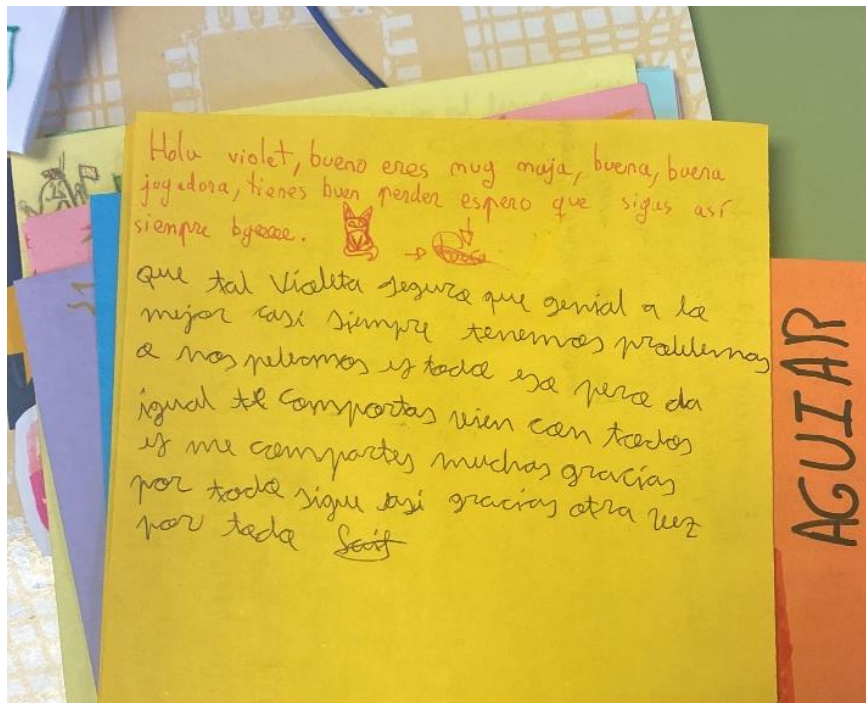 Hola violet, bueno eres muy maja, buena, buena
jugadora, tienes buen perder espero que sigas así
siempre byeeee.
que tal Violeta seguro que genial a lo
mejor casi siempre tenemos problemas
o nos peleamos y todo eso pero da
igual te comportas vien con todos
y me compartes muchas gracias
por todo sigue asi gracias otra vez
por todo Saif
AGUIAR